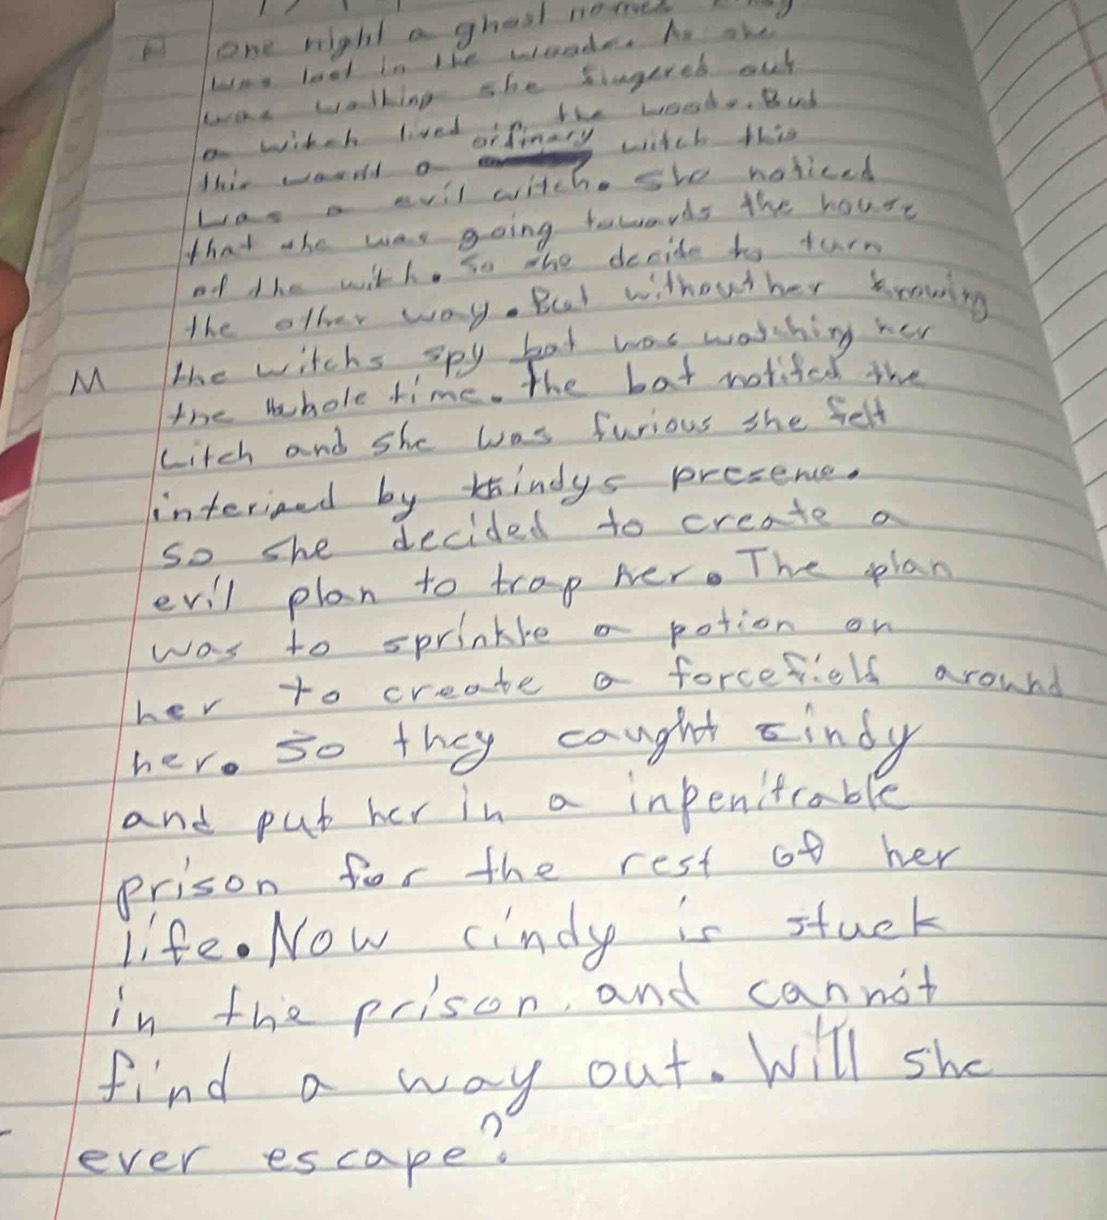 one night a ghost named
was lost in the woods. As she
was walking she out
a witch lived in the woods. But
this a ordinary witch this
was a evil witch. she noticed
that she was going towards the house
of the witch. So she decide to turn
the other way. But without her knowing
M the witchs spy bat was watching her
the whole time. The bat notifed the
witch and she was furious she felt
by kindys presence.
so she decided to create a
evil plan to trap her. The plan
was to sprinkle a potion on
her to create a forcefield around
her. So they caught cindy
and put her in a inpenitrable
prison for the rest of her
life. Now cindy is stuck
in the prison, and cannot
find a way out. Will she
ever escape?